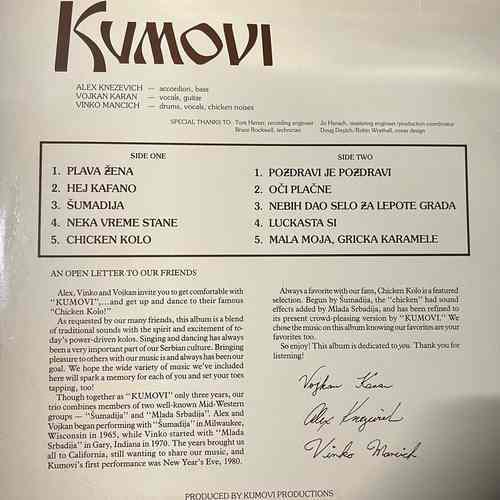 KUMOVI
ALEX KNEZEVICH — accordion, bass
VOJKAN KARAN — vocals, guitar
VINKO MANCICH — drums, vocals, chicken noises
SPECIAL THANKS TO: Tom Heron, recording engineer Jo Hansch, mastering engineer/production coordinator
Bruce Rockwell, technician Doug Dayich/Robin Wrathall, cover design
SIDE ONE
1. PLAVA ŽENA
2. HEJ KAFANO
3. ŠUMADIJA
4. NEKA VREME STANE
5. CHICKEN KOLO
SIDE TWO
1. POZDRAVI JE POZDRAVI
2. OČI PLAČNE
3. NEBIH DAO SELO ZA LEPOTE GRADA
4. LUCKASTA SI
5. MALA MOJA, GRICKA KARAMELE
AN OPEN LETTER TO OUR FRIENDS
Alex, Vinko and Vojkan invite you to get comfortable with
"KUMOVI",...and get up and dance to their famous
"Chicken Kolo!"
As requested by our many friends, this album is a blend
of traditional sounds with the spirit and excitement of to-
day's power-driven kolos. Singing and dancing has always
been a very important part of our Serbian culture. Bringing
pleasure to others with our music is and always has been our
goal. We hope the wide variety of music we've included
here will spark a memory for each of you and set your toes
tapping, too!
Though together as "KUMOVI" only three years, our
trio combines members of two well-known Mid-Western
groups — "Šumadija" and "Mlada Srbadija". Alex and
Vojkan began performing with "Šumadija" in Milwaukee,
Wisconsin in 1965, while Vinko started with "Mlada
Srbadija" in Gary, Indiana in 1970. The years brought us
all to California, still wanting to share our music, and
Kumovi's first performance was New Year's Eve, 1980.
Always a favorite with our fans, Chicken Kolo is a featured
selection. Begun by Šumadija, the "chicken" had sound
effects added by Mlada Srbadija, and has been refined to
its present crowd-pleasing version by "KUMOVI." We
chose the music on this album knowing our favorites are your
favorites too.
So enjoy! This album is dedicated to you. Thank you for
listening!
Vojkan Karan
Alex Knezevich
Vinko Mancich
PRODUCED BY KUMOVI PRODUCTIONS